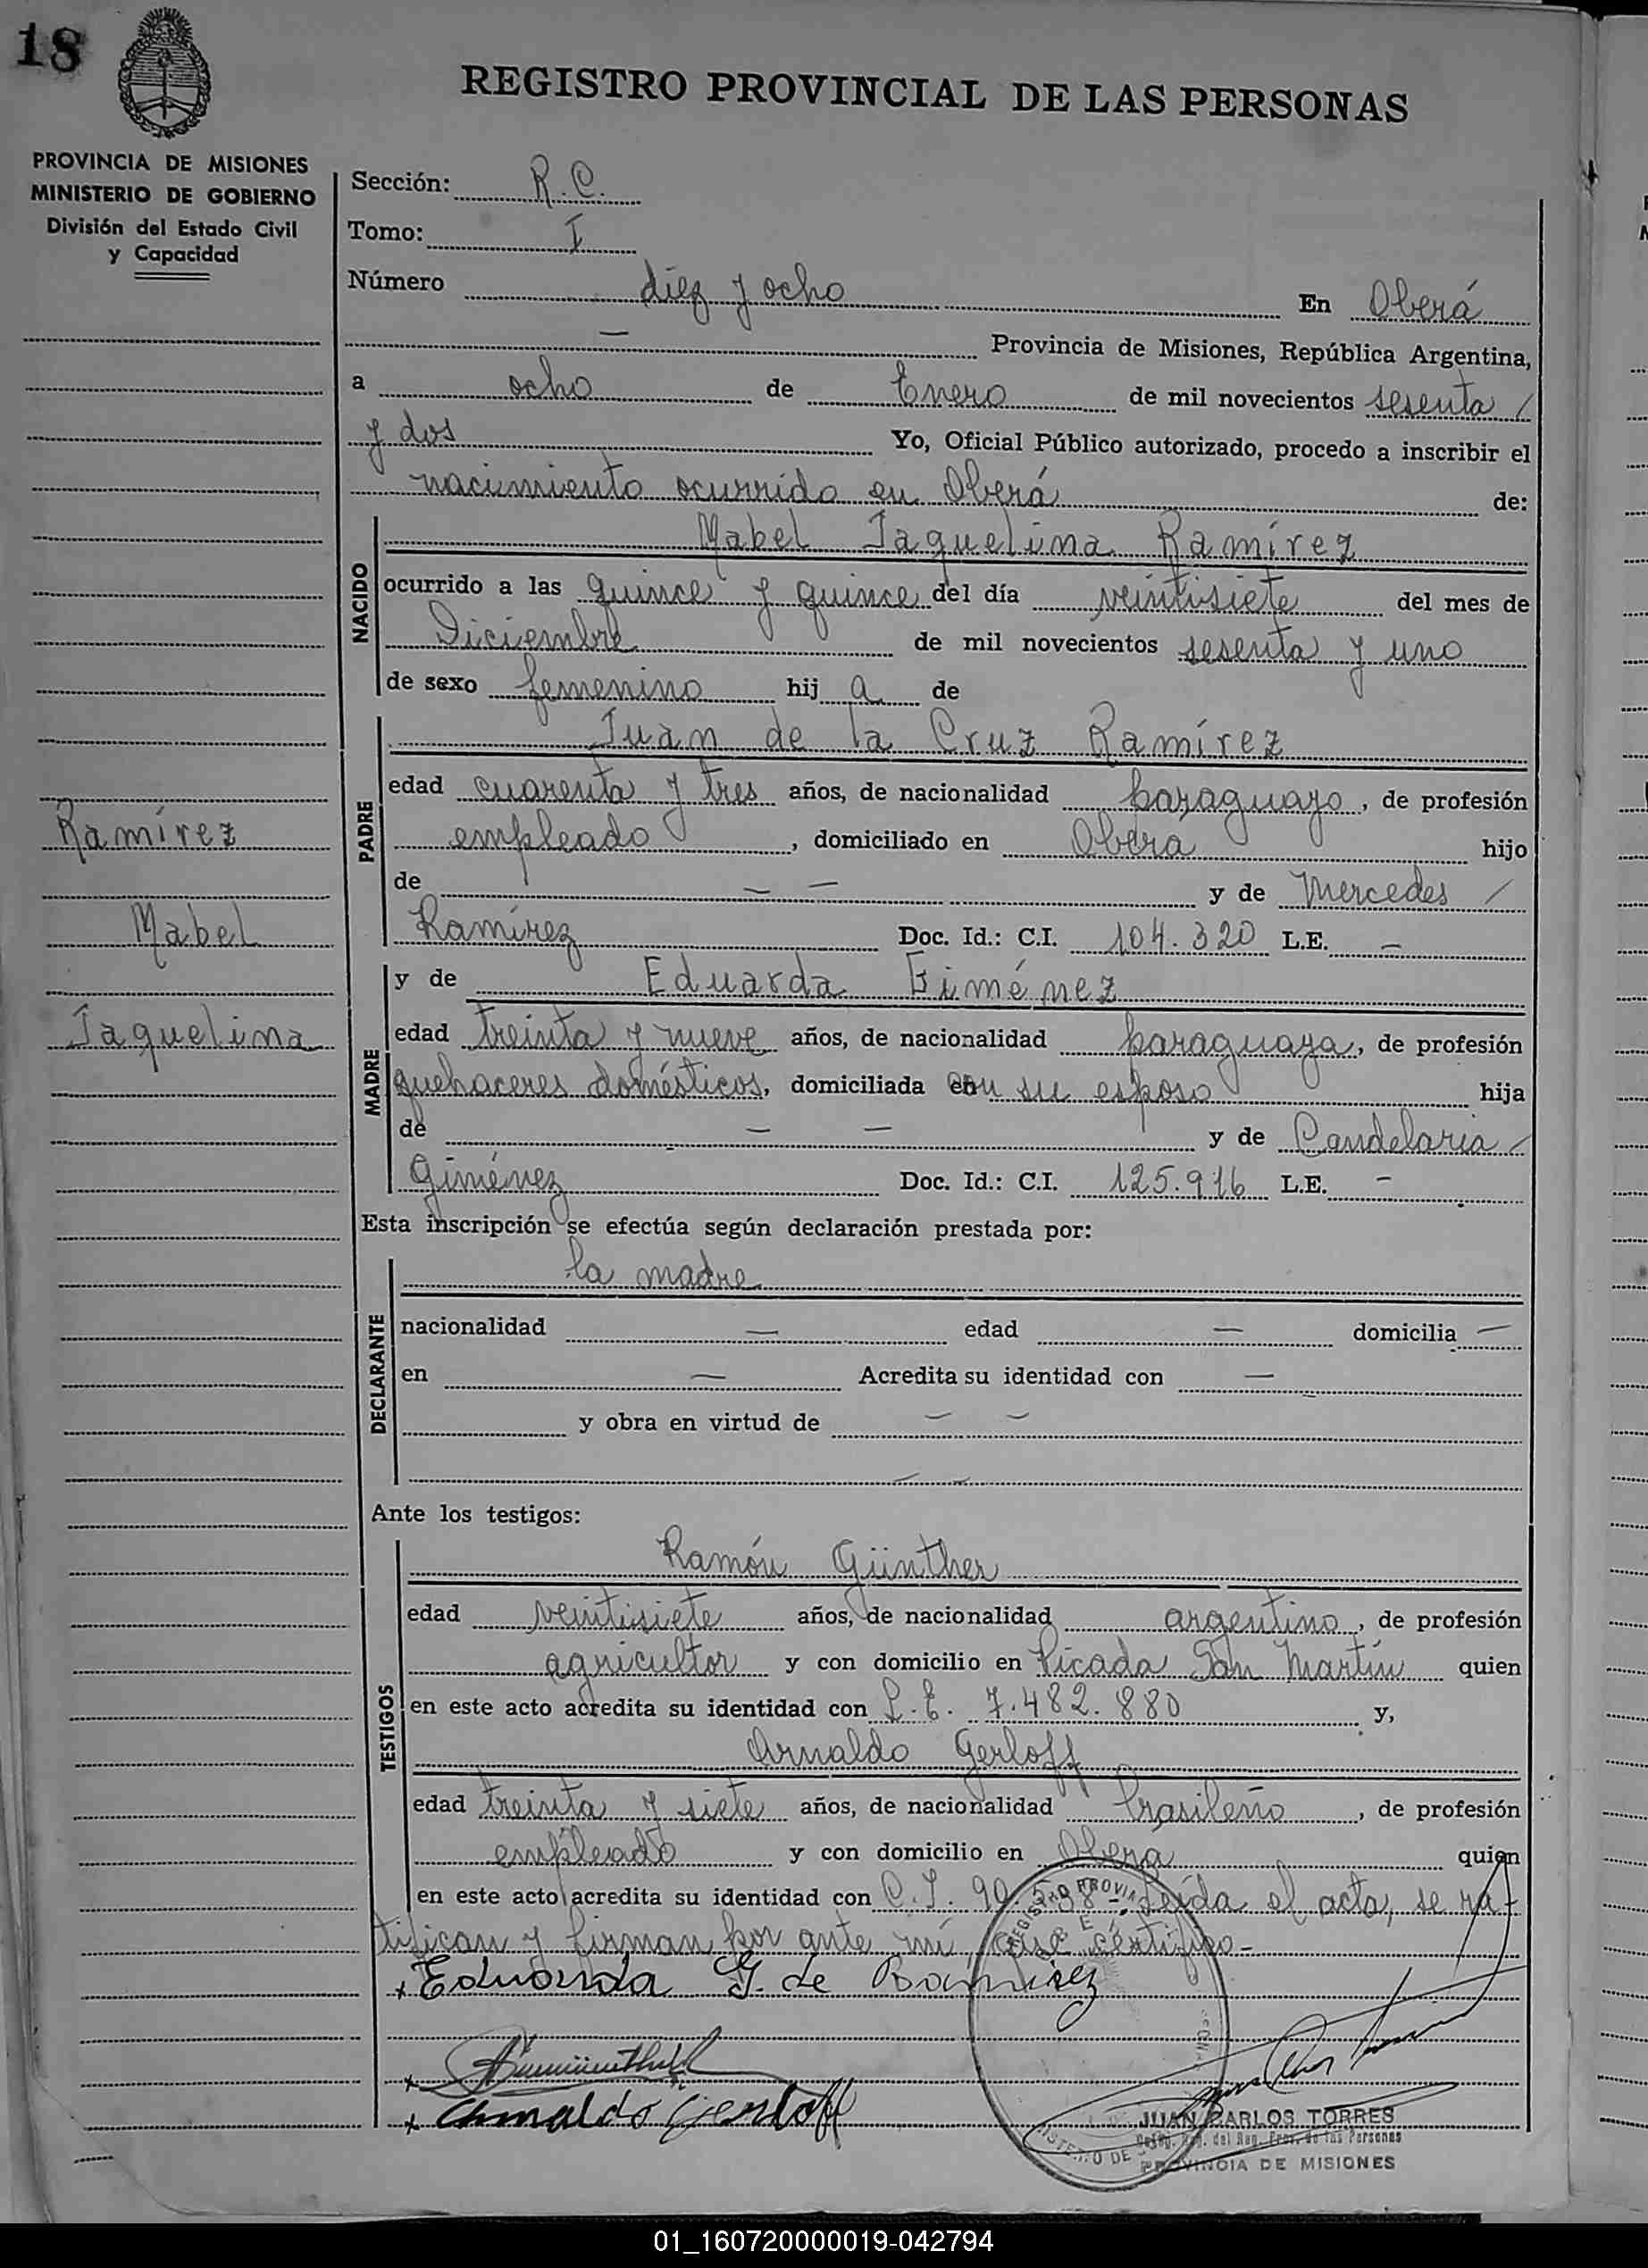 18
REGISTRO PROVINCIAL DE LAS PERSONAS
PROVINCIA DE MISIONES
MINISTERIO DE GOBIERNO
División del Estado Civil
y Capacidad
Sección: R.C.
Tomo: I
Número diez y ocho En Oberá
— Provincia de Misiones, República Argentina,
a ocho de Enero de mil novecientos sesenta /
y dos Yo, Oficial Público autorizado, procedo a inscribir el
nacimiento ocurrido en Oberá de:
NACIDO
Mabel Jaquelina Ramírez
ocurrido a las quince y quince del día veintisiete del mes de
Diciembre de mil novecientos sesenta y uno
de sexo femenino hij a de
PADRE
Juan de la Cruz Ramírez
edad cuarenta y tres años, de nacionalidad paraguayo, de profesión
empleado, domiciliado en Oberá hijo
de — — y de Mercedes /
Ramírez Doc. Id.: C.I. 104.320 L.E. —
Ramírez
Mabel
Jaquelina
MADRE
y de Eduarda Giménez
edad treinta y nueve años, de nacionalidad paraguaya, de profesión
quehaceres domésticos, domiciliada con su esposo hija
de — — y de Candelaria /
Giménez Doc. Id.: C.I. 125.916 L.E. —
Esta inscripción se efectúa según declaración prestada por:
DECLARANTE
la madre
nacionalidad — edad — domicilia —
en — Acredita su identidad con —
y obra en virtud de — —
— —
Ante los testigos:
TESTIGOS
Ramón Günther
edad veintisiete años, de nacionalidad argentino, de profesión
agricultor y con domicilio en Picada San Martín quien
en este acto acredita su identidad con L.E. 7.482.880 y,
Arnaldo Gerloff
edad treinta y siete años, de nacionalidad brasileño, de profesión
empleado y con domicilio en Oberá quien
en este acto acredita su identidad con C.I. 90. Leída el acta, se ra-
tifican y firman por ante mí, que certifico-
x Eduarda G. de Ramirez
x
x Arnaldo Gerloff
JUAN CARLOS TORRES
del Reg. Prov. de las Personas
PROVINCIA DE MISIONES
01_160720000019-042794